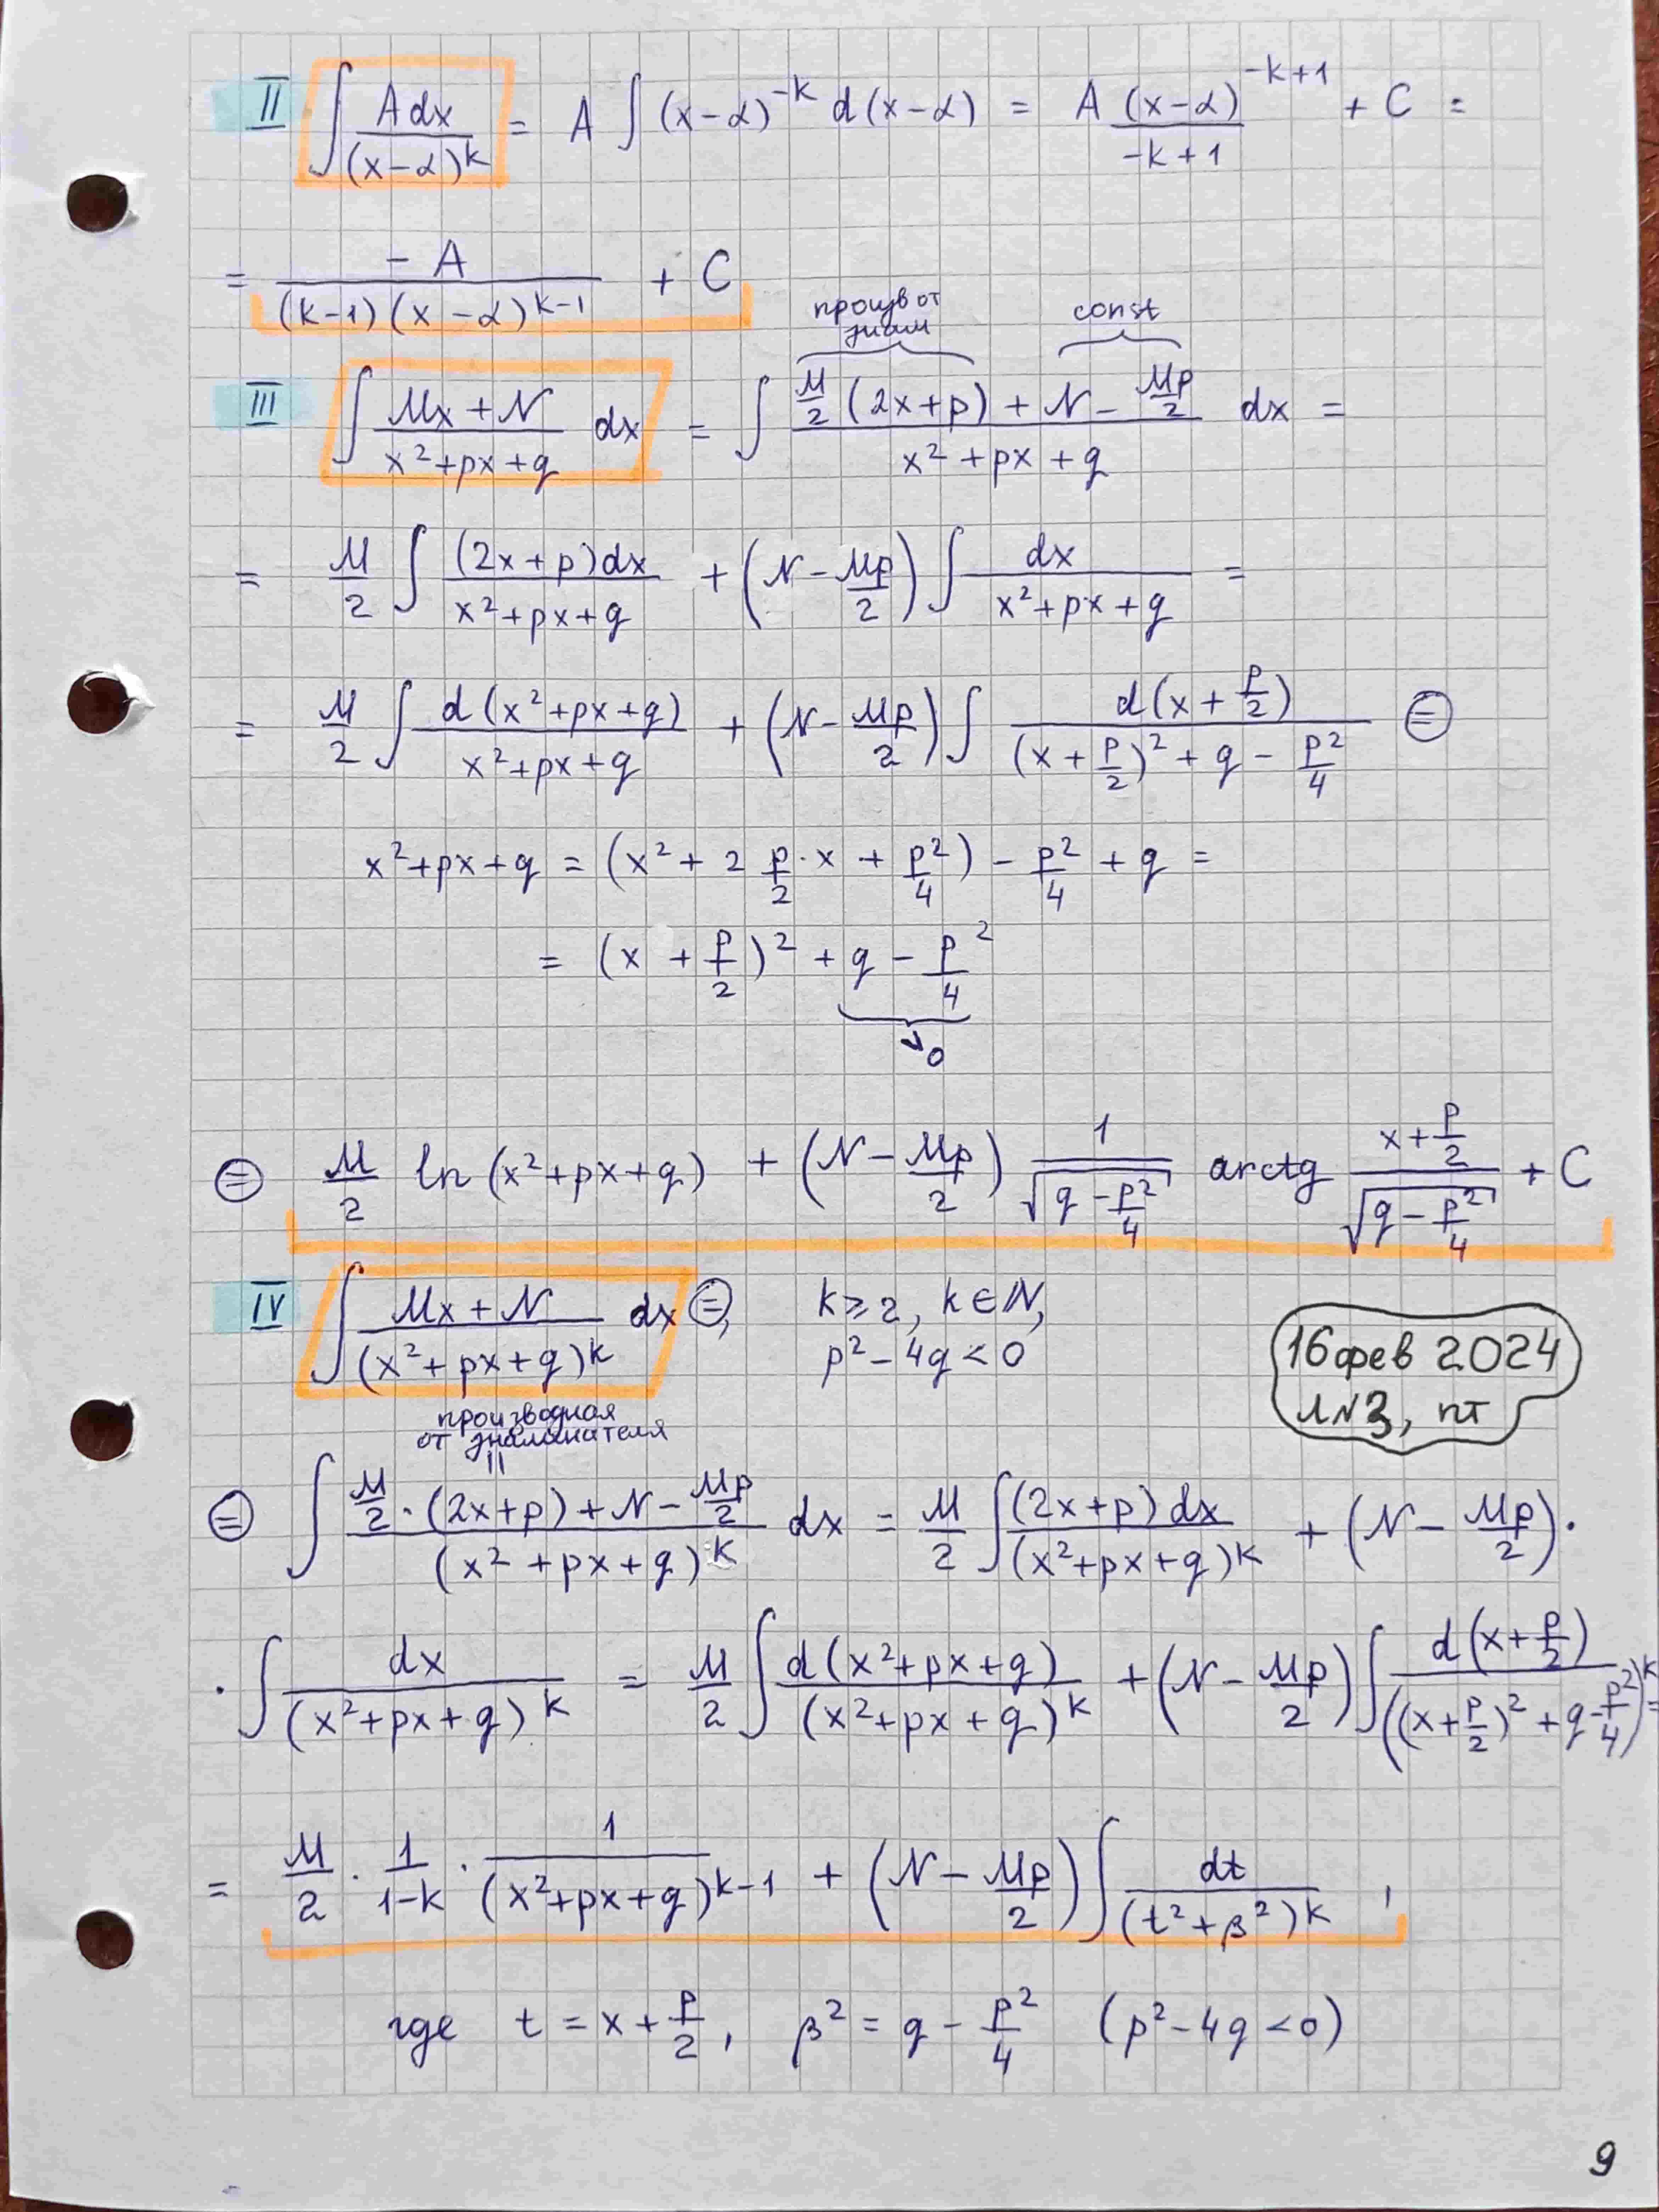 II ∫ A dx / (x-α)^k = A ∫ (x-α)^{-k} d(x-α) = A (x-α)^{-k+1} / (-k+1) + C =
= -A / ((k-1)(x-α)^{k-1}) + C
произв от знам
const
III ∫ (Mx+N) / (x²+px+q) dx = ∫ (M/2 (2x+p) + N - Mp/2) / (x²+px+q) dx =
= M/2 ∫ (2x+p)dx / (x²+px+q) + (N - Mp/2) ∫ dx / (x²+px+q) =
= M/2 ∫ d(x²+px+q) / (x²+px+q) + (N - Mp/2) ∫ d(x+p/2) / ((x+p/2)² + q - p²/4) ⊜
x²+px+q = (x² + 2 p/2 · x + p²/4) - p²/4 + q =
= (x + p/2)² + q - p²/4
∨0
⊜ M/2 ln(x²+px+q) + (N - Mp/2) 1/√(q - p²/4) arctg (x+p/2)/√(q - p²/4) + C
IV ∫ (Mx+N) / (x²+px+q)^k dx ⊜, k⩾2, k∈ℕ,
p²-4q<0
16 фев 2024
л№3, пт
производная
от знаминателя
॥
⊜ ∫ (M/2 · (2x+p) + N - Mp/2) / (x²+px+q)^k dx = M/2 ∫ (2x+p)dx / (x²+px+q)^k + (N - Mp/2) ·
· ∫ dx / (x²+px+q)^k = M/2 ∫ d(x²+px+q) / (x²+px+q)^k + (N - Mp/2) ∫ d(x+p/2) / ((x+p/2)² + q - p²/4)^k =
= M/2 · 1/(1-k) · 1/(x²+px+q)^{k-1} + (N - Mp/2) ∫ dt / (t²+β²)^k ,
где t = x + p/2, β² = q - p²/4 (p²-4q<0)
9